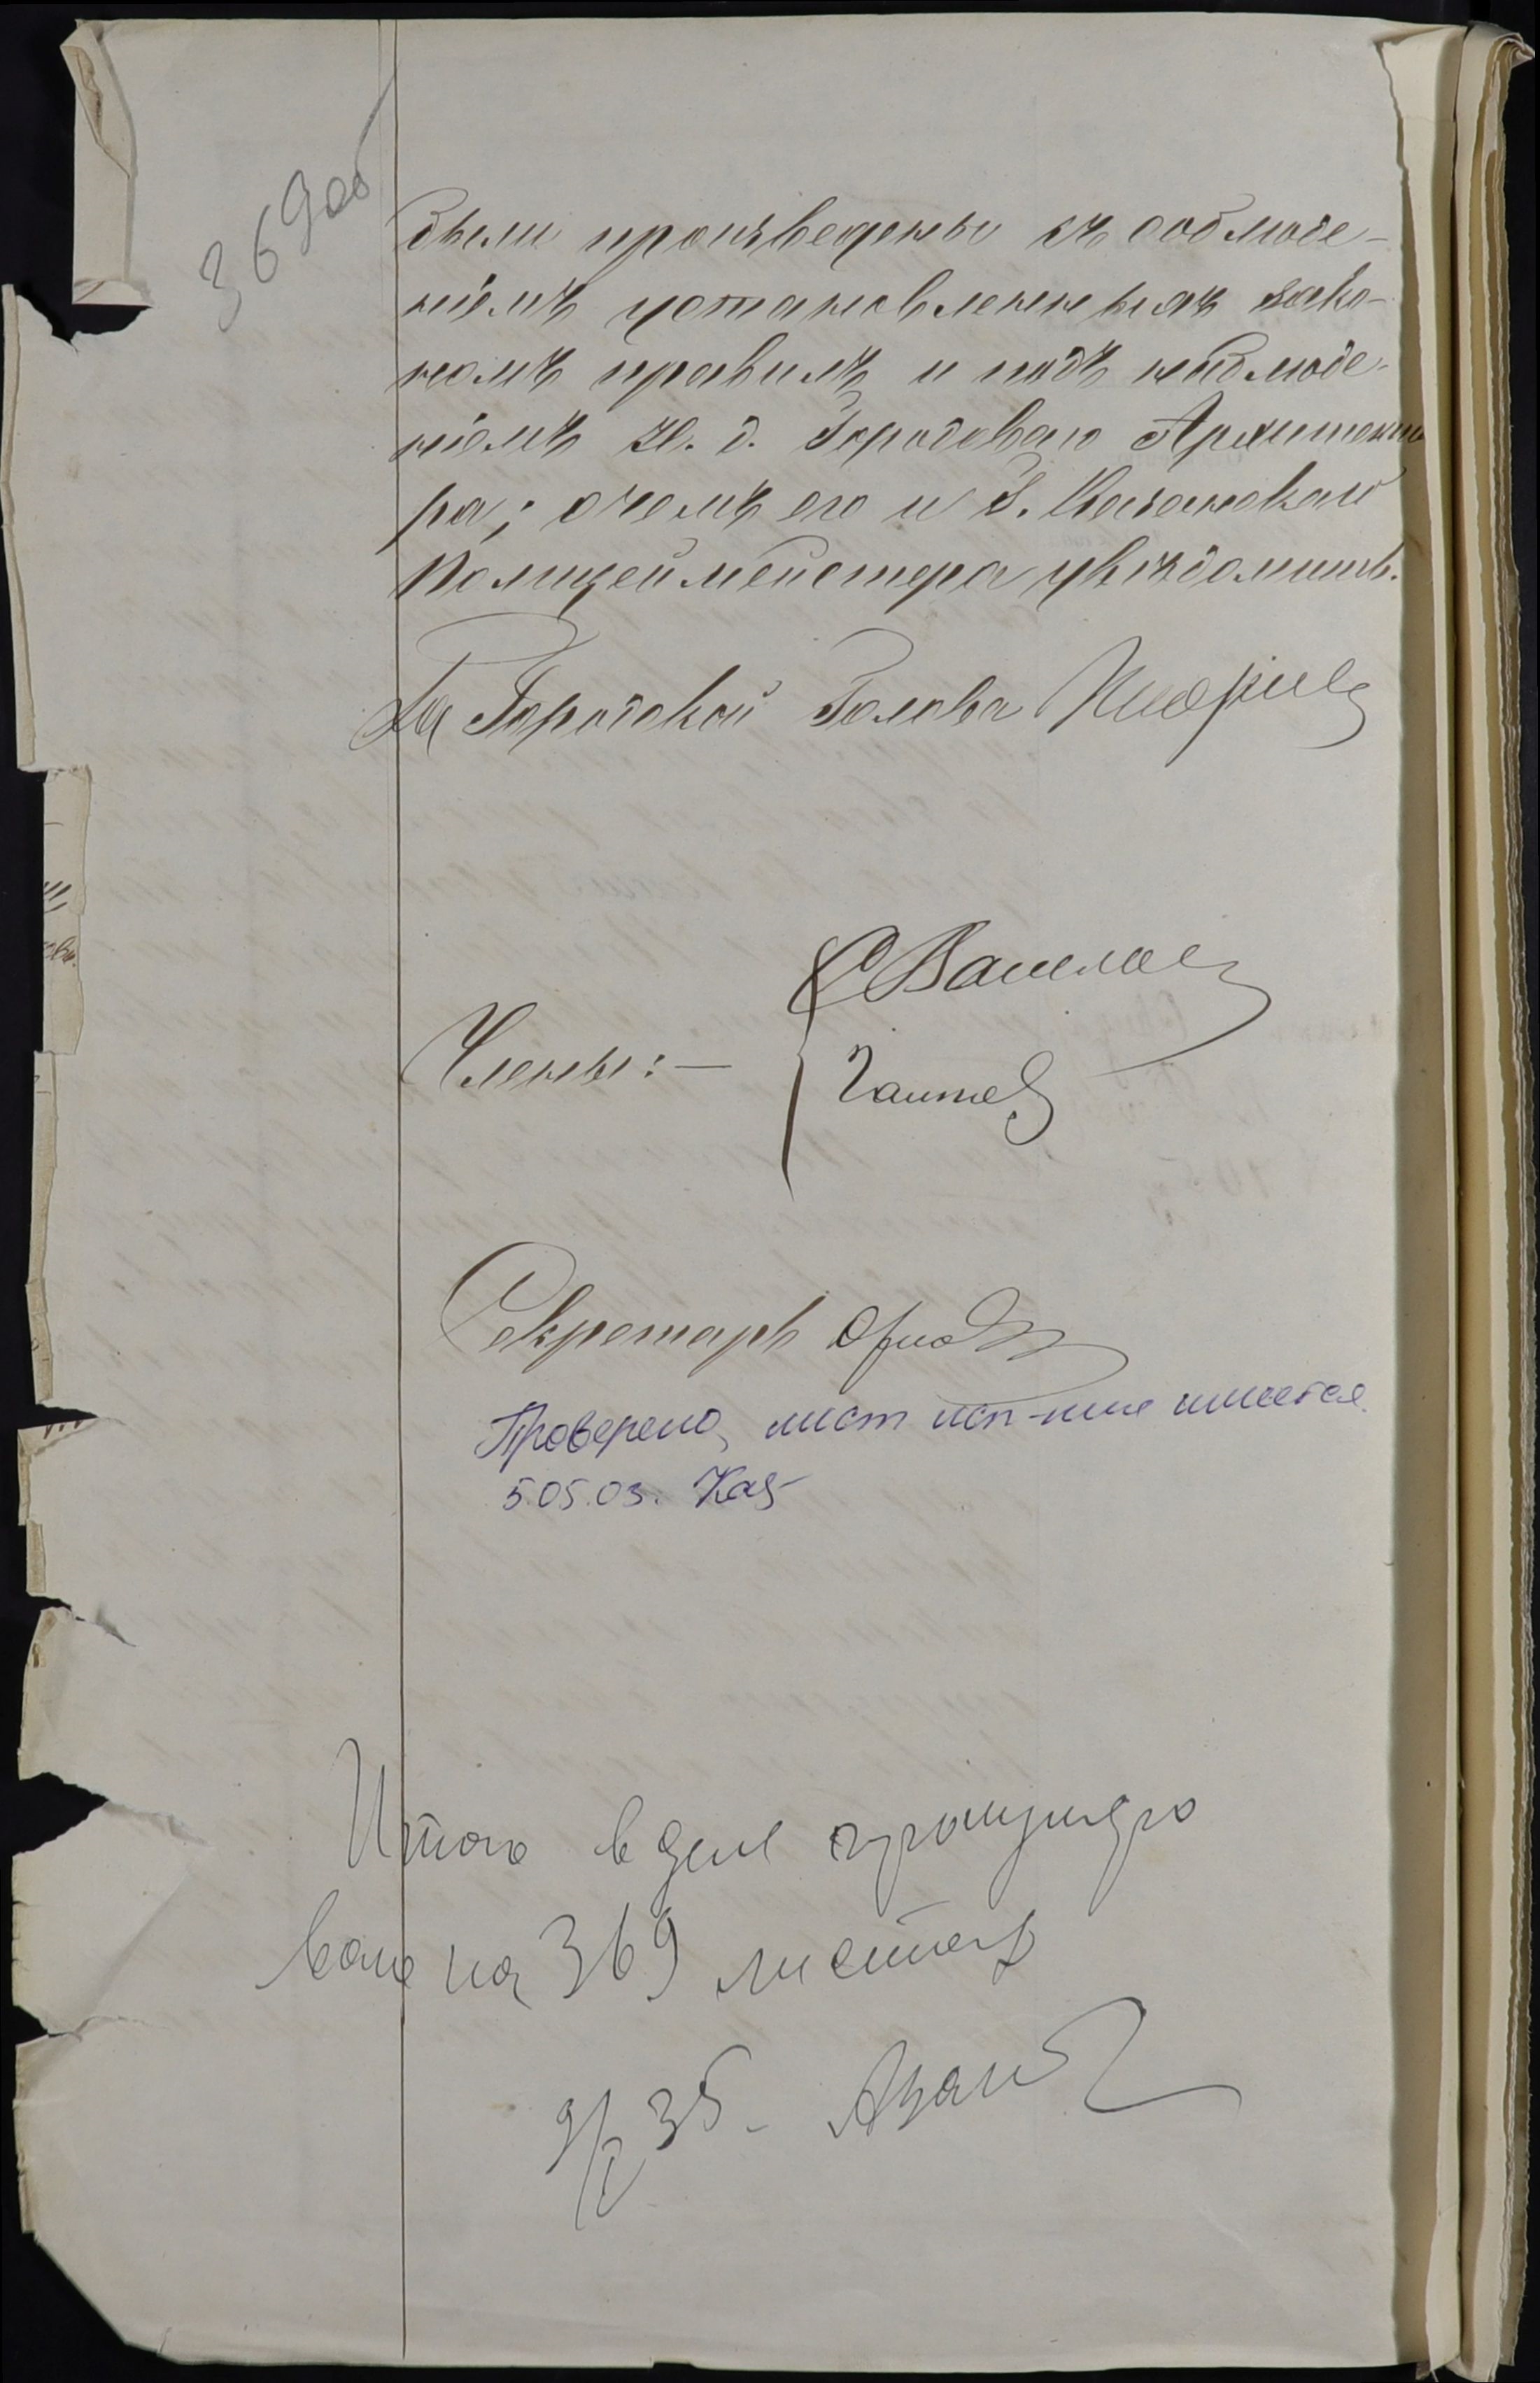 369об
были произведены съ соблюде-
ніемъ установленныхъ зако-
номъ правилъ и подъ наблюде-
ніемъ И. д. Городоваго Архитекто
ра; о чемъ его и Г. Казанскаго
Полицеймейстера увѣдомить.
За Городской Голова
Члены: —
Секретарь
Проверено, лист исп-ния имеется.
5.05.03.
Итого в деле пронумеро
вано на 369 листах
9/V 35.